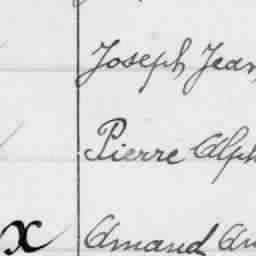 Joseph Jean
Pierre Alph
x Amand